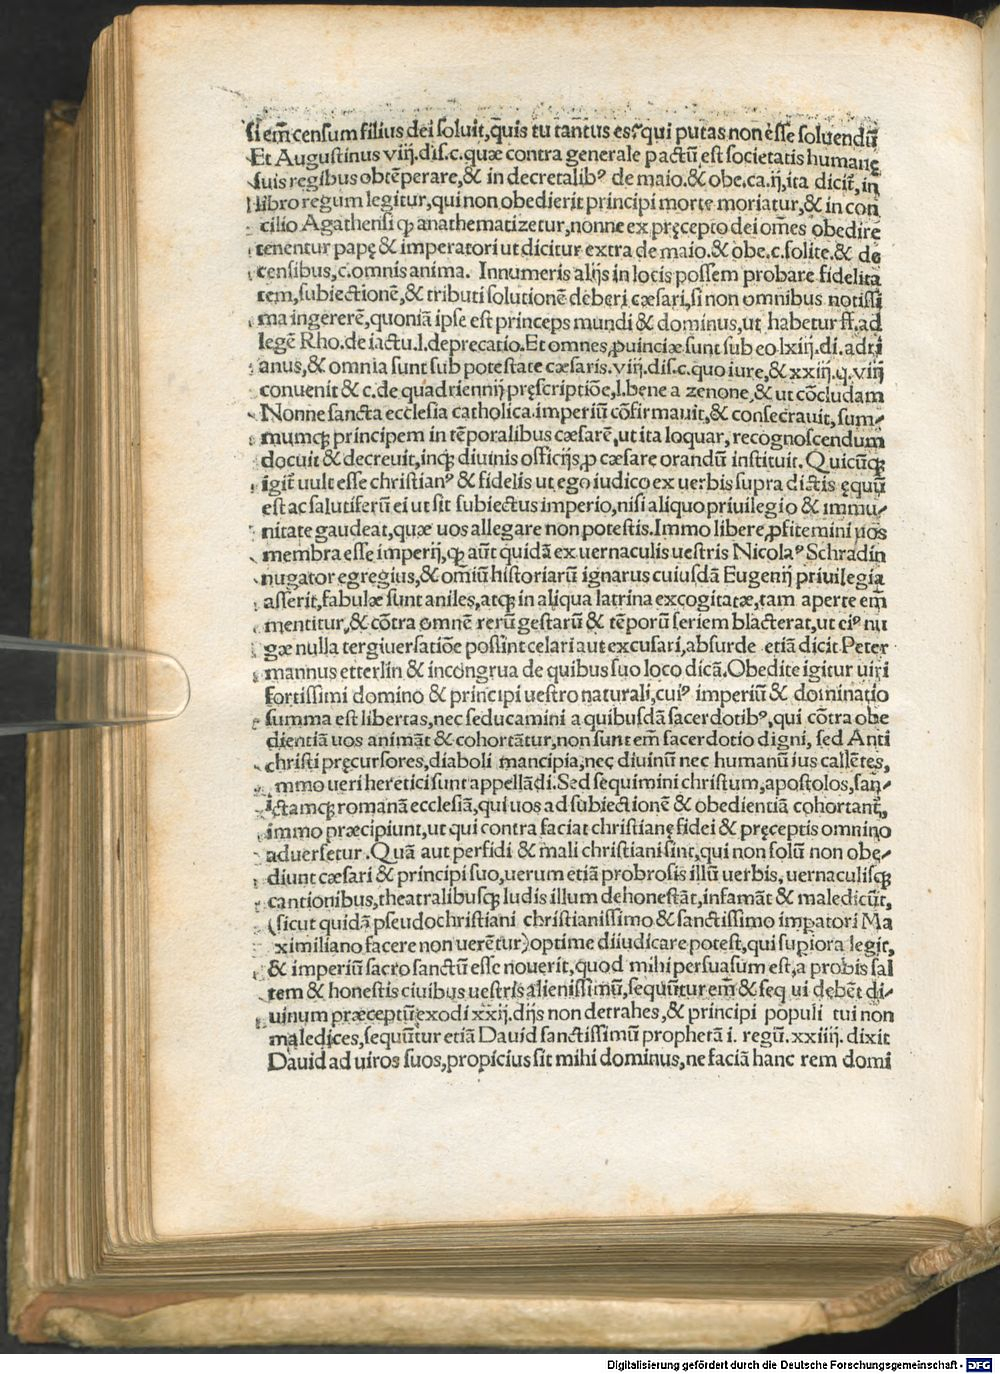 si em̃ censum filius dei soluit, q̃uis tu tantus es? qui putas non ẽsse soluendũ
Et Augustinus viij. dis. c. quæ contra generale pactũ est societatis humanę
suis regibus obtẽperare, & in decretalibꝰ de maio. & obe. ca. ij, ita dicit̃, in
libro regum legitur, qui non obedierit principi morte moriatur, & in con
cilio Agathensi ꝙ anathematizetur, nonne ex pręcepto dei om̃es obedire
tenentur papę & imperatori ut dicitur extra de maio. & obe. c. solite. & de
censibus, c. omnis anima. Innumeris alijs in locis possem probare fidelita
tem, subiectionẽ, & tributi solutionẽ deberi cæsari, si non omnibus notissi
ma ingererẽ, quoniã ipse est princeps mundi & dominus, ut habetur ff. ad
legẽ Rho. de iactu. l. deprecatio. Et omnes ꝓuinciæ sunt sub eo lxiij. di. adri
anus, & omnia sunt sub potestate cæsaris. viij. dis. c. quo iure, & xxiij. q. viij
conuenit & c. de quadriennij pręscriptiõe, l. bene a zenone, & ut cõcludam
Nonne sancta ecclesia catholica imperiũ cõfirmauit, & consecrauit, sum/
mumqꝫ principem in tẽporalibus cæsarẽ, ut ita loquar, recognoscendum
docuit & decreuit, inqꝫ diuinis officijs, ꝑ cæsare orandũ instituit. Quicũqꝫ
igit̃ uult esse christianꝰ & fidelis ut ego iudico ex uerbis supra dictis ęquũ
est ac salutiferũ ei ut sit subiectus imperio, nisi aliquo priuilegio & immu/
nitate gaudeat, quæ uos allegare non potestis. Immo libere ꝓfitemini uos
membra esse imperij, ꝙ aũt quidã ex uernaculis uestris Nicolaꝰ Schradin
nugator egregius, & om̃iũ historiarũ ignarus cuiusdã Eugenij priuilegia
asserit, fabulæ sunt aniles, atqꝫ in aliqua latrina excogitatæ, tam aperte em̃
mentitur, & cõtra omnẽ rerũ gestarũ & tẽporũ seriem blacterat, ut eiꝰ nu
gæ nulla tergiuersatiõe possint celari aut excusari, absurde etiã dicit Peter
mannus etterlin & incongrua de quibus suo loco dicã. Obedite igitur uiri
fortissimi domino & principi uestro naturali, cuiꝰ imperiũ & dominatio
summa est libertas, nec seducamini a quibusdã sacerdotibꝰ, qui cõtra obe
dientiã uos animãt & cohortãtur, non sunt em̃ sacerdotio digni, sed Anti
christi pręcursores, diaboli mancipia, nec diuinũ nec humanũ ius callẽtes,
immo ueri heretici sunt appellãdi. Sed sequimini christum, apostolos, san/
ctamqꝫ romanã ecclesiã, qui uos ad subiectionẽ & obedientiã cohortant̃,
immo præcipiunt, ut qui contra faciat christianę fidei & pręceptis omnino
aduersetur. Quã aut perfidi & mali christiani sint, qui non solũ non obę/
diunt cæsari & principi suo, uerum etiã probrosis illũ uerbis, uernaculisqꝫ
cantionibus, theatralibusqꝫ ludis illum dehonestãt, infamãt & maledicũt,
(sicut quidã pseudochristiani christianissimo & sanctissimo imꝑatori Ma
ximiliano facere non uerẽtur) optime diiudicare potest, qui suꝑiora legit,
& imperiũ sacro sanctũ esse nouerit, quod mihi persuasum est, a probis sal
tem & honestis ciuibus uestris alienissimũ, sequũtur em̃ & seq ui debẽt di/
uinum præceptũ exodi xxij. dijs non detrahes, & principi populi tui non
maledices, sequũtur etiã Dauid sanctissimũ prophetã i. regũ. xxiiij. dixit
Dauid ad uiros suos, propicius sit mihi dominus, ne faciã hanc rem domi
Digitalisierung gefördert durch die Deutsche Forschungsgemeinschaft - DFG